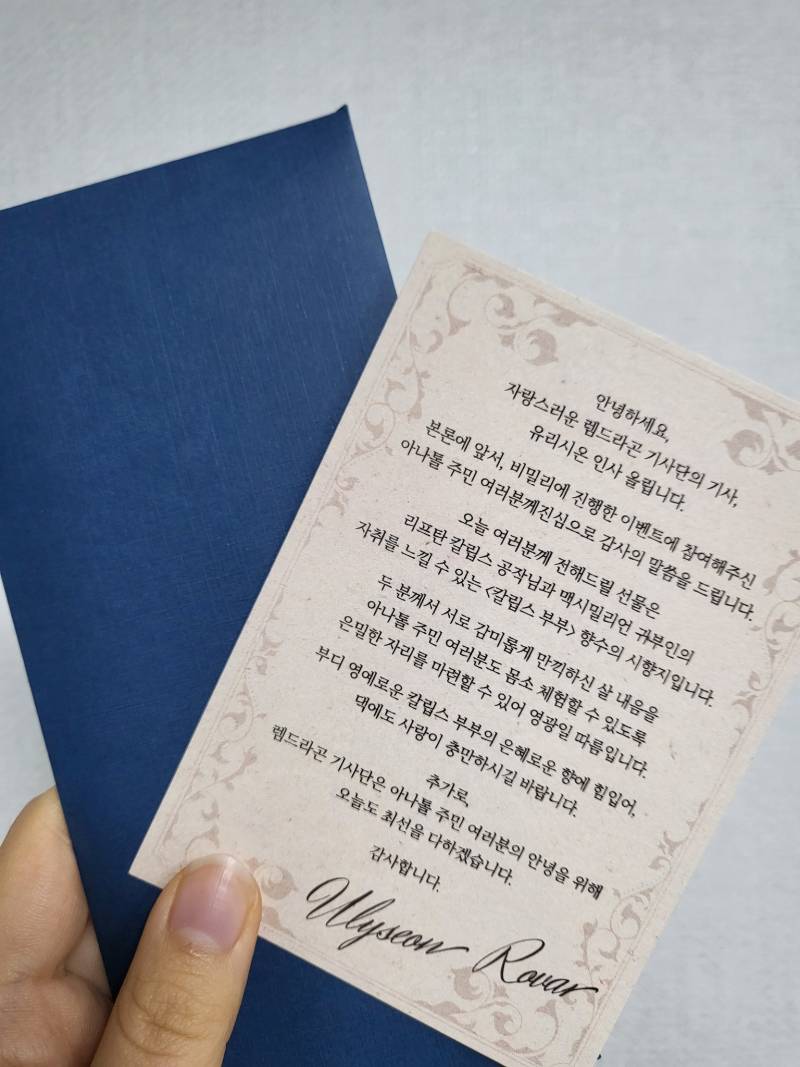 안녕하세요,
자랑스러운 렘드라곤 기사단의 기사,
유리시온 인사 올립니다.
본론에 앞서, 비밀리에 진행한 이벤트에 참여해주신
아나톨 주민 여러분께진심으로 감사의 말씀을 드립니다.
오늘 여러분께 전해드릴 선물은
리프탄 칼립스 공작님과 맥시밀리언 귀부인의
자취를 느낄 수 있는 <칼립스 부부> 향수의 시향지입니다.
두 분께서 서로 감미롭게 만끽하신 살 내음을
아나톨 주민 여러분도 몸소 체험할 수 있도록
은밀한 자리를 마련할 수 있어 영광일 따름입니다.
부디 영예로운 칼립스 부부의 은혜로운 향에 힘입어,
댁에도 사랑이 충만하시길 바랍니다.
추가로,
렘드라곤 기사단은 아나톨 주민 여러분의 안녕을 위해
오늘도 최선을 다하겠습니다.
감사합니다.
Ulyseon Rovar